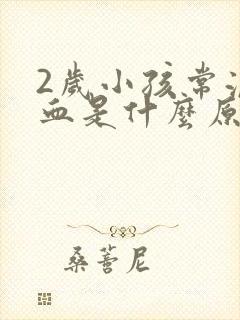 2歲小孩常
血是什麼原
桑蕾尼